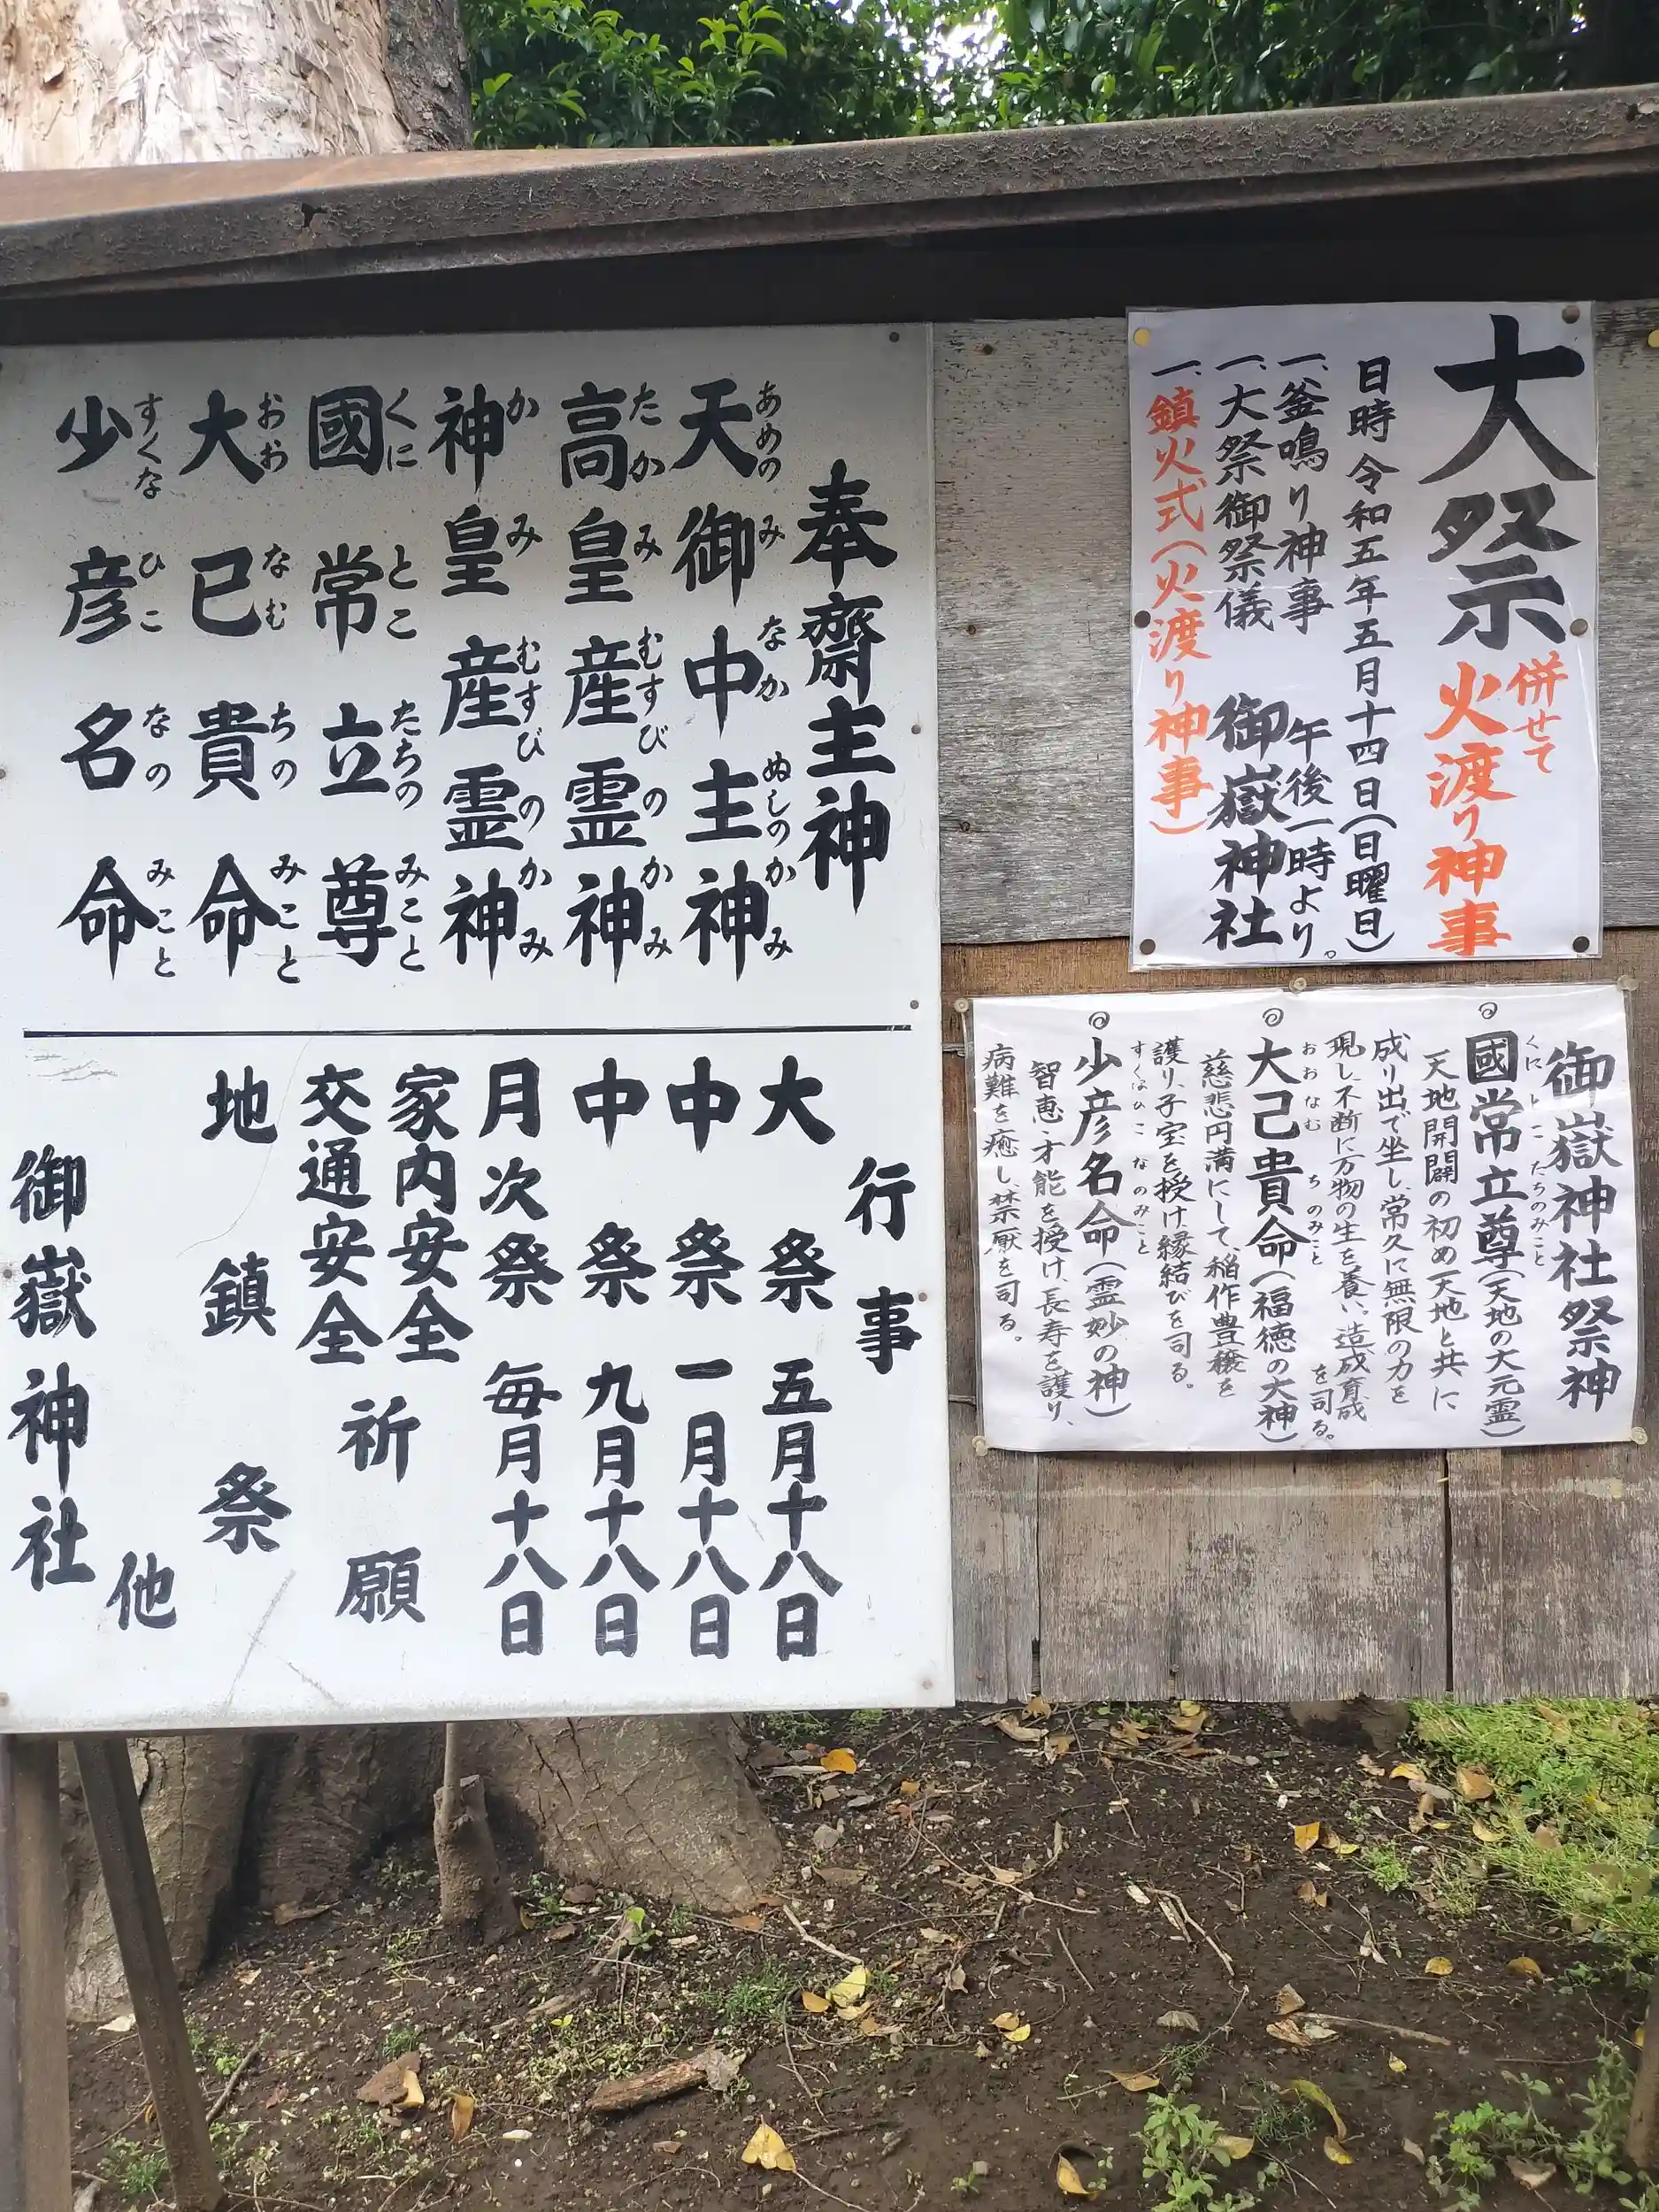 奉齋主神
天御中主神
あめの み なか ぬしの かみ
高皇産霊神
たか み むすび の かみ
神皇産霊神
か み むすび の かみ
國常立尊
くに とこ たちの みこと
大已貴命
おお なむ ちの みこと
少彦名命
すくな ひこ なの みこと
行事
大祭 五月十八日
中祭 一月十八日
中祭 九月十八日
月次祭 毎月十八日
家内安全
交通安全
祈願
地鎮祭
他
御嶽神社
大祭
併せて
火渡り神事
日時 令和五年五月十四日(日曜日)
午後一時より。
一、釜鳴り神事
一、大祭御祭儀
御嶽神社
一、鎮火式(火渡り神事)
御嶽神社祭神
くに とこ たちのみこと
國常立尊(天地の大元霊)
天地開闢の初め天地と共に
成り出で坐し、常久に無限の力を
現し、不断に万物の生を養い、造成育成
を司る。
おお なむ ちのみこと
大己貴命(福徳の大神)
慈悲円満にして、稲作豊穣を
護り、子宝を授け縁結びを司る。
すくな ひこ なのみこと
少彦名命(霊妙の神)
智恵・才能を授け、長寿を護り、
病難を癒し、禁厭を司る。